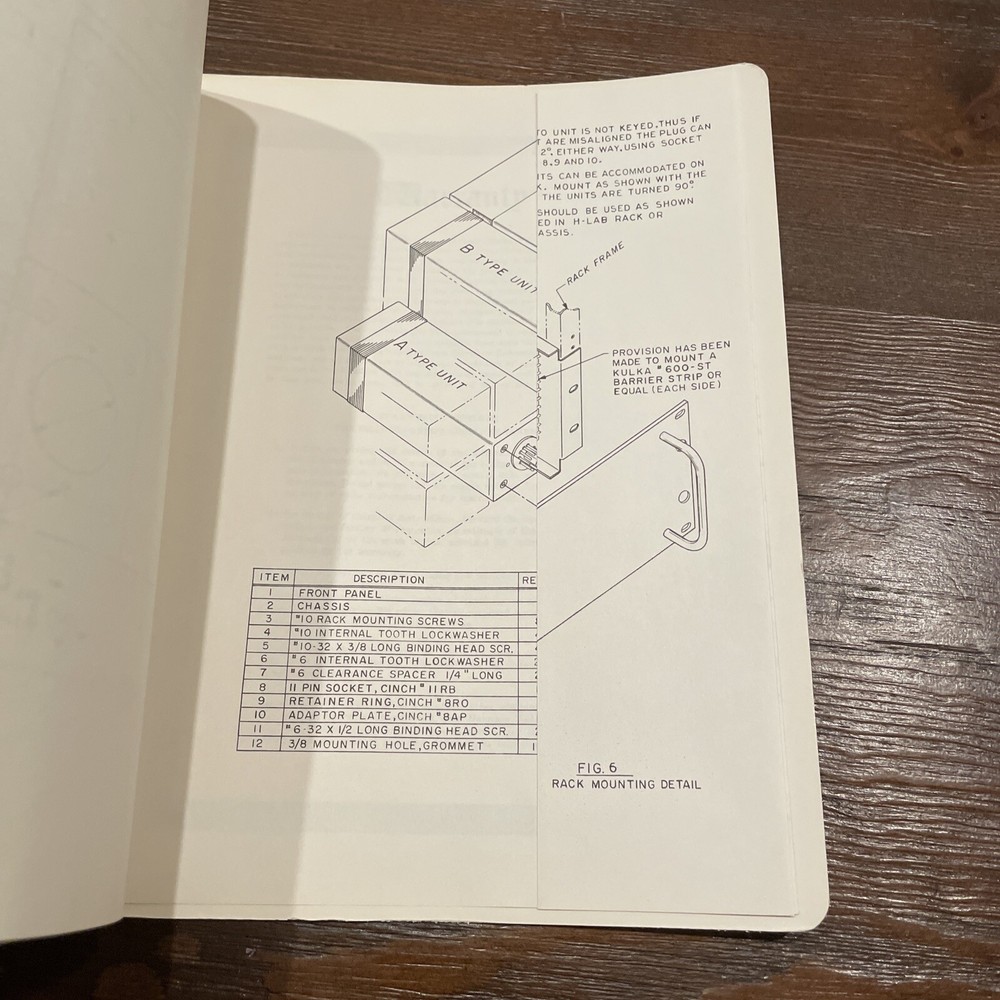 TO UNIT IS NOT KEYED. THUS IF
ARE MISALIGNED THE PLUG CAN
2°. EITHER WAY, USING SOCKET
8, 9 AND 10.
ITS CAN BE ACCOMMODATED ON
K. MOUNT AS SHOWN WITH THE
THE UNITS ARE TURNED 90°.
SHOULD BE USED AS SHOWN
ED IN H-LAB RACK OR
ASSIS.
RACK FRAME
B TYPE UNIT
A TYPE UNIT
PROVISION HAS BEEN
MADE TO MOUNT A
KULKA #600-ST
BARRIER STRIP OR
EQUAL (EACH SIDE)
ITEM DESCRIPTION RE
1 FRONT PANEL
2 CHASSIS
3 #10 RACK MOUNTING SCREWS
4 #10 INTERNAL TOOTH LOCKWASHER
5 #10-32 X 3/8 LONG BINDING HEAD SCR.
6 #6 INTERNAL TOOTH LOCKWASHER
7 #6 CLEARANCE SPACER 1/4" LONG
8 11 PIN SOCKET, CINCH #11RB
9 RETAINER RING, CINCH #8RO
10 ADAPTOR PLATE, CINCH #8AP
11 #6-32 X 1/2 LONG BINDING HEAD SCR.
12 3/8 MOUNTING HOLE, GROMMET 1
FIG. 6
RACK MOUNTING DETAIL